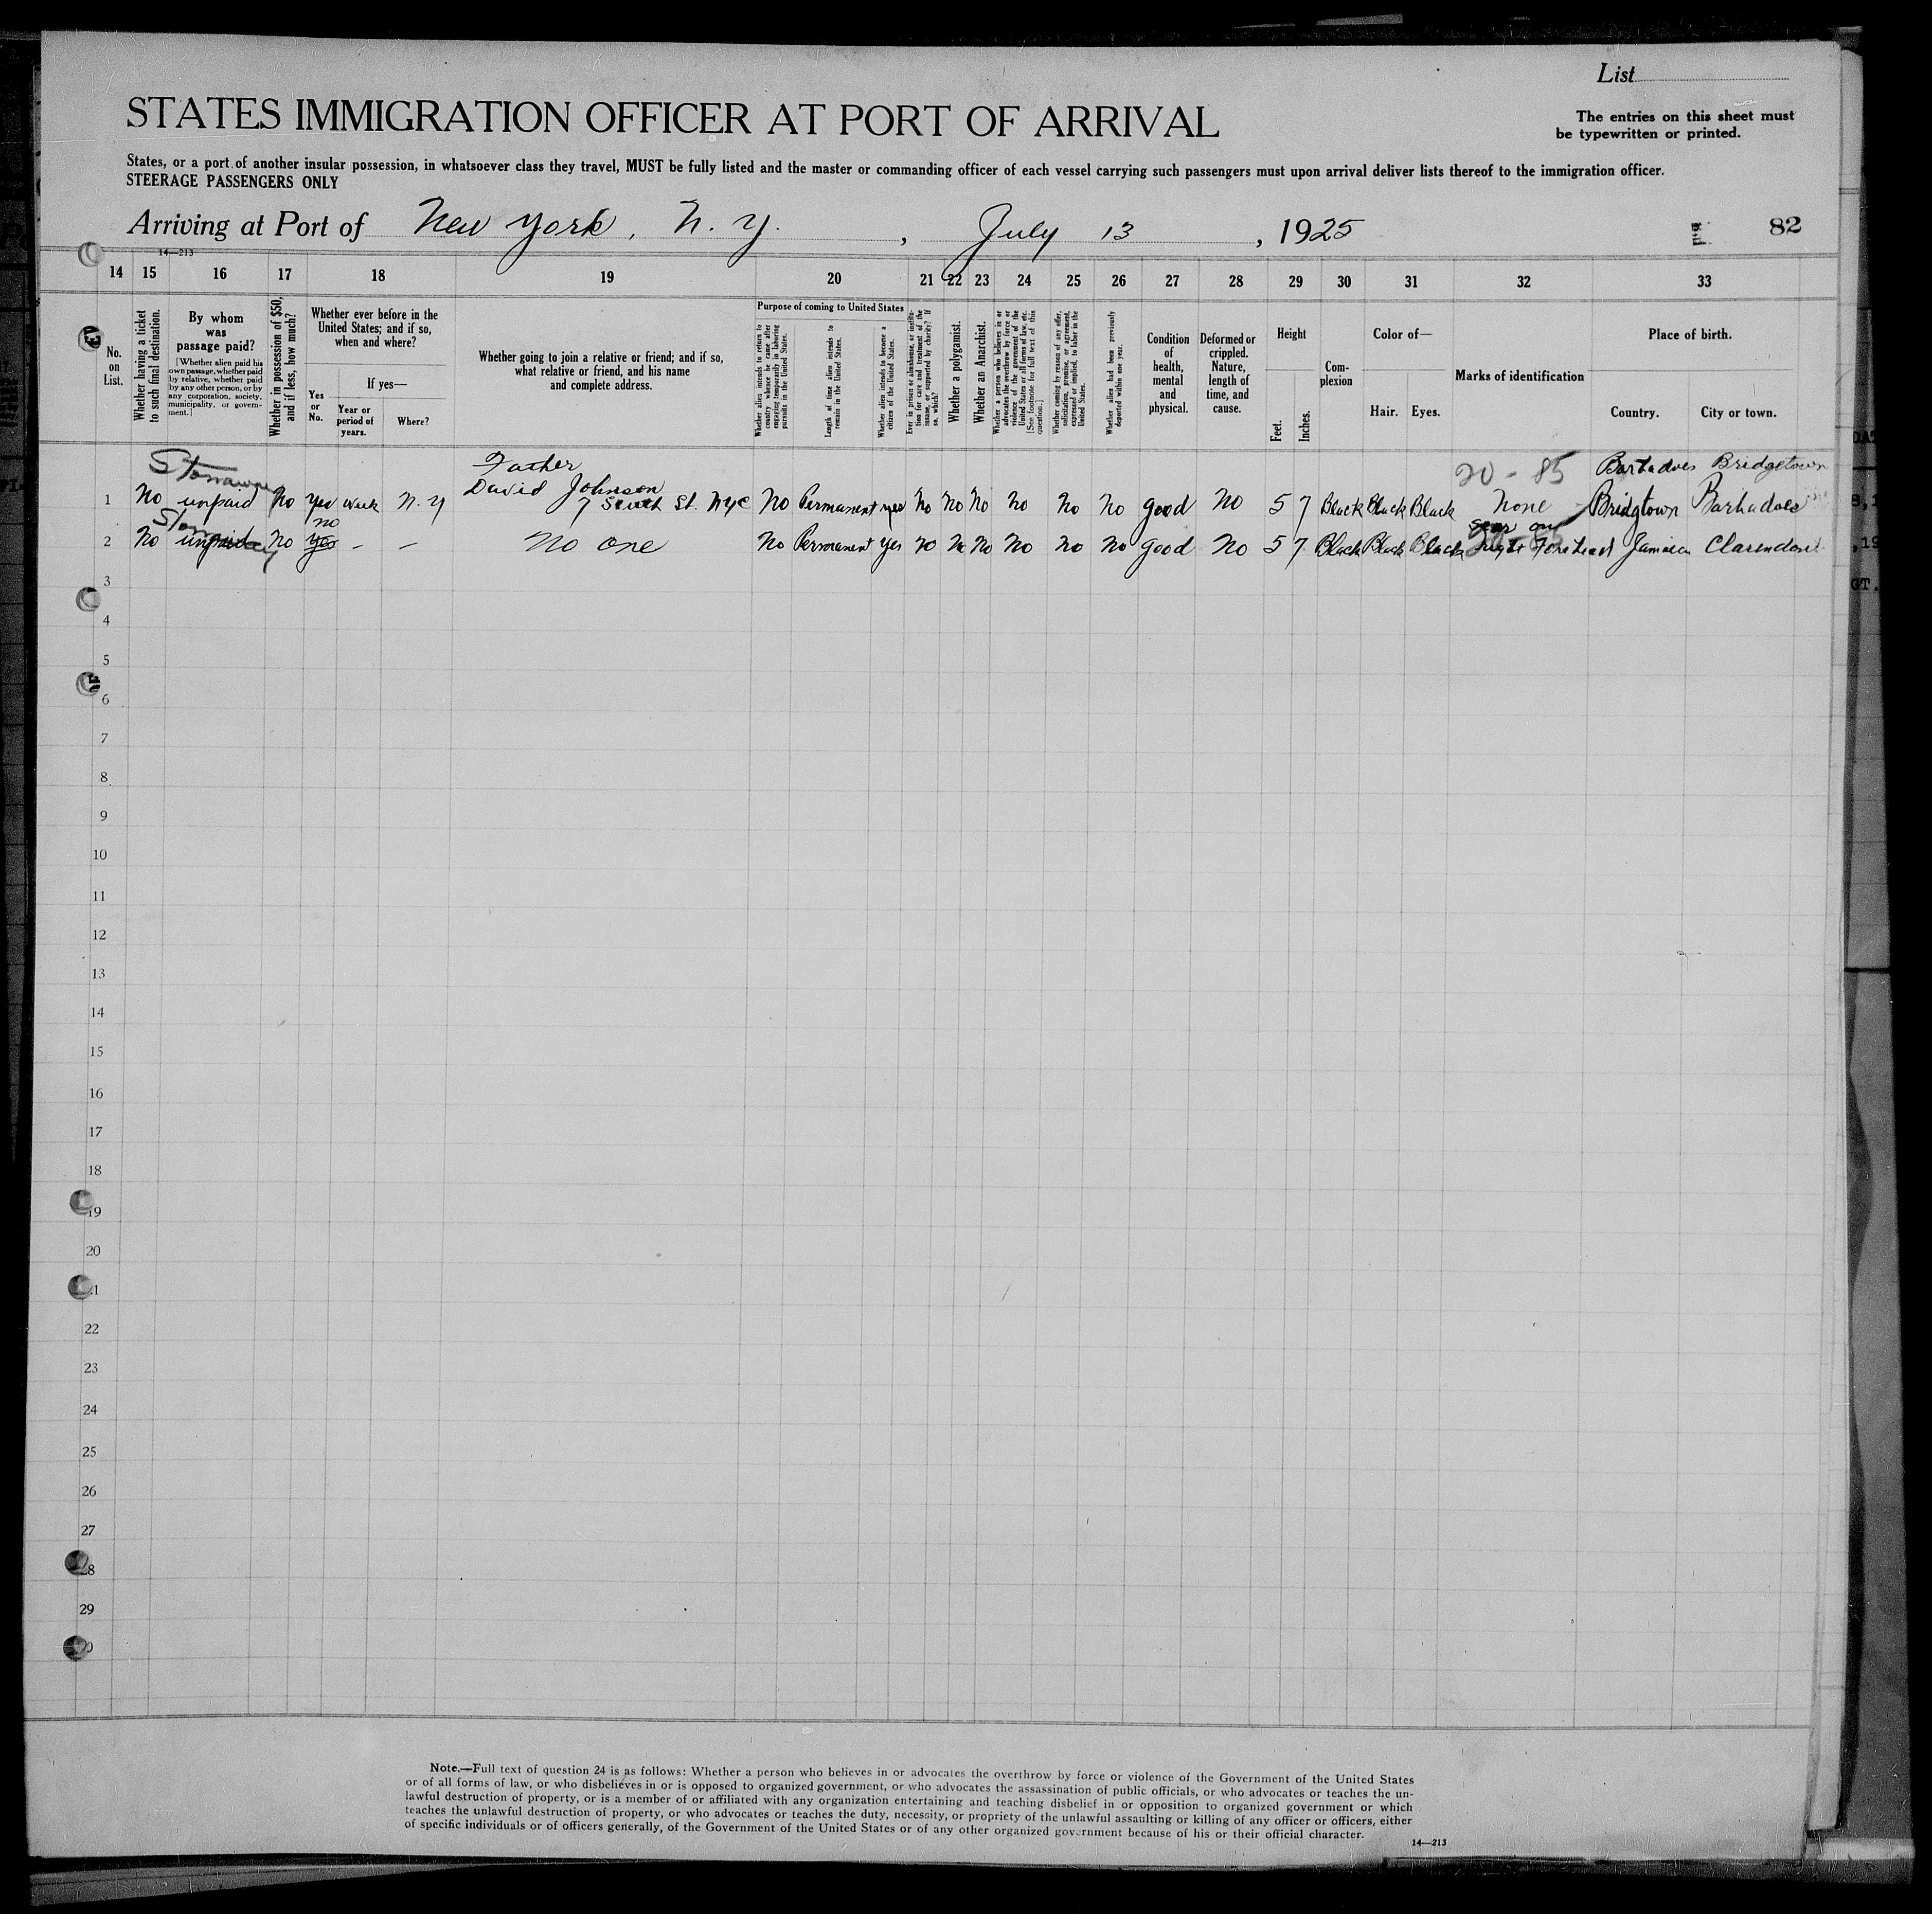 List
STATES IMMIGRATION OFFICER AT PORT OF ARRIVAL
The entries on this sheet must
be typewritten or printed.
States, or a port of another insular possession, in whatsoever class they travel, MUST be fully listed and the master or commanding officer of each vessel carrying such passengers must upon arrival deliver lists thereof to the immigration officer.
STEERAGE PASSENGERS ONLY
Arriving at Port of New York, N. Y., July 13, 1925
82
14—213
14 15 16 17 18 19 20 21 22 23 24 25 26 27 28 29 30 31 32 33
No. on List.
Whether having a ticket to such final destination.
By whom was passage paid?
[Whether alien paid his own passage, whether paid by relative, whether paid by any other person, or by any corporation, society, municipality, or government.]
Whether in possession of $50, and if less, how much?
Whether ever before in the United States; and if so, when and where?
Yes or No.
If yes—
Year or period of years.
Where?
Whether going to join a relative or friend; and if so, what relative or friend, and his name and complete address.
Purpose of coming to United States
Whether alien intends to return to country whence he came after engaging temporarily in laboring pursuits in the United States.
Length of time alien intends to remain in the United States.
Whether alien intends to become a citizen of the United States.
Ever in prison or almshouse, or institution for care and treatment of the insane, or supported by charity? If so, which?
Whether a polygamist.
Whether an Anarchist.
Whether a person who believes in or advocates the overthrow by force or violence of the government of the United States or all forms of law, etc. [See footnote for full text of this question.]
Whether coming by reason of any offer, solicitation, promise, or agreement, expressed or implied, to labor in the United States.
Whether alien had been previously deported within one year.
Condition of health, mental and physical.
Deformed or crippled. Nature, length of time, and cause.
Height
Feet.
Inches.
Complexion
Color of—
Hair. Eyes.
Marks of identification
Place of birth.
Country. City or town.
Stowaway Father 20 - 85 Barbadoes Bridgetown
1 No unpaid No Yes Week N. Y David Johnson 7 South St. NYC No Permanent yes No No No No No No good No 5 7 Black Black Black None Bridgtown Barbadoes
no scar on
2 No unpaid No Yes - - No one No Permanent Yes No No No No No No good No 5 7 Black Black Black right Forehead Jamaica Clarendon
3
4
5
6
7
8
9
10
11
12
13
14
15
16
17
18
19
20
21
22
23
24
25
26
27
28
29
30
Note.—Full text of question 24 is as follows: Whether a person who believes in or advocates the overthrow by force or violence of the Government of the United States
or of all forms of law, or who disbelieves in or is opposed to organized government, or who advocates the assassination of public officials, or who advocates or teaches the un-
lawful destruction of property, or is a member of or affiliated with any organization entertaining and teaching disbelief in or opposition to organized government or which
teaches the unlawful destruction of property, or who advocates or teaches the duty, necessity, or propriety of the unlawful assaulting or killing of any officer or officers, either
of specific individuals or of officers generally, of the Government of the United States or of any other organized government because of his or their official character.
14—213